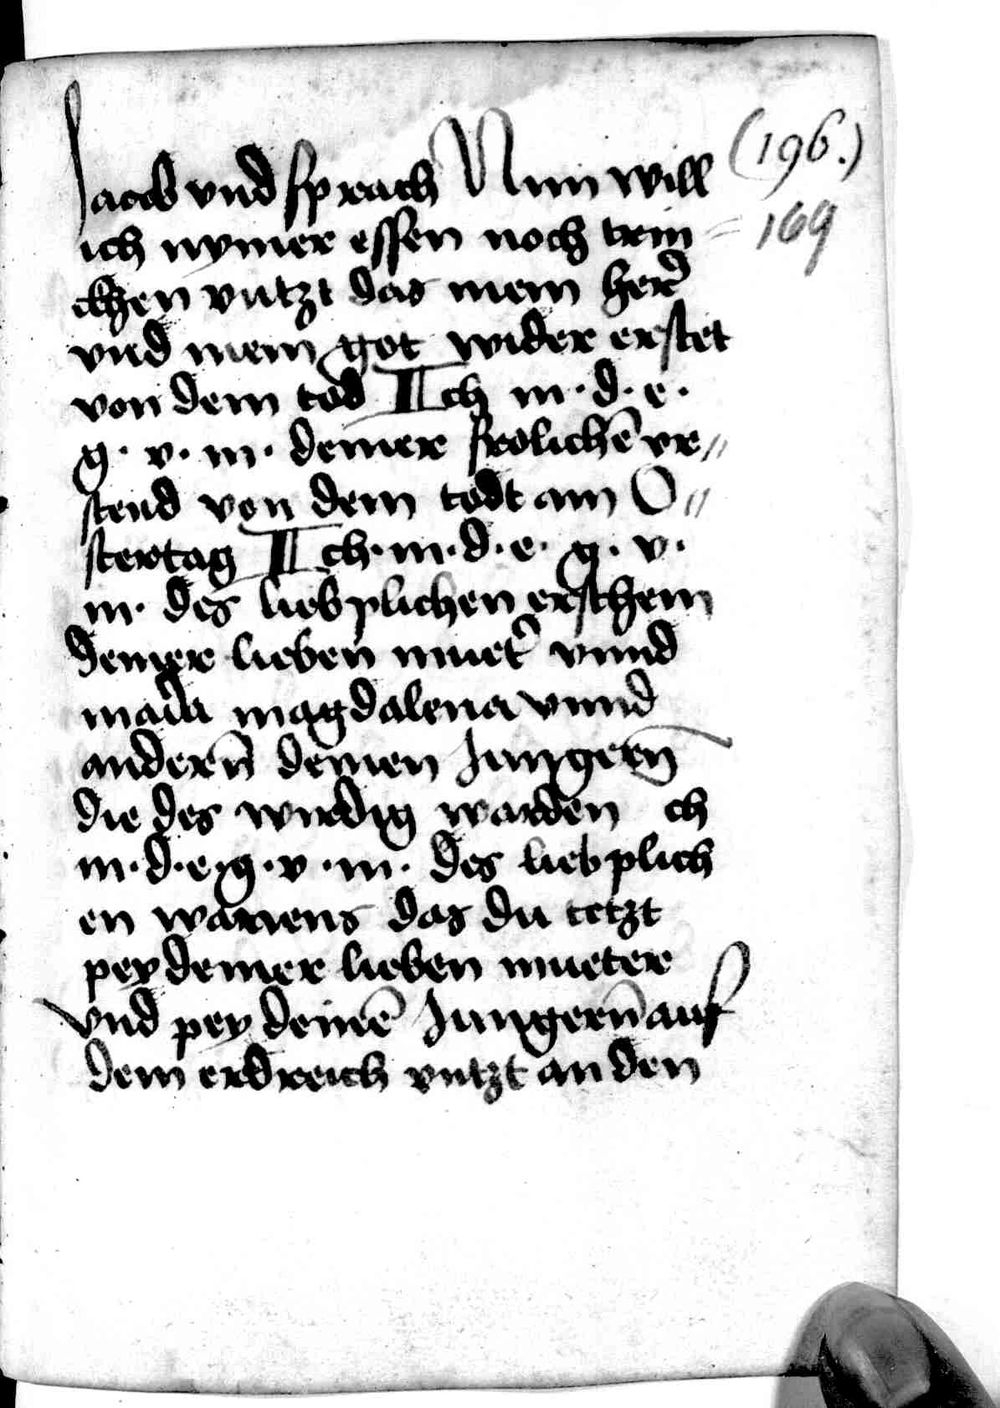 Jacob vnd sprach Nun will
(196.)
ich nymer essen noch trin
169
ckhen vntzt das mein her̄
vnd mein got wider erstet
von dem tod Ich m · d · e ·
g · v · m · deiner frolichē vr„
stend von dem todt am O„
stertag Ich · m · d · e · g · v ·
m · des lieb plichen erschein
deiner lieben muet̄ vnnd
maria magdalena vnnd
andern̄ deinen Jungern̄
die des wirdig warden ch
m · d · e · g · v · m · des lieb plich
en wanens das du tetzt
pey deiner lieben mueter
vnd pey deinē Jungern̄ auf
dem erdreich vntzt an den